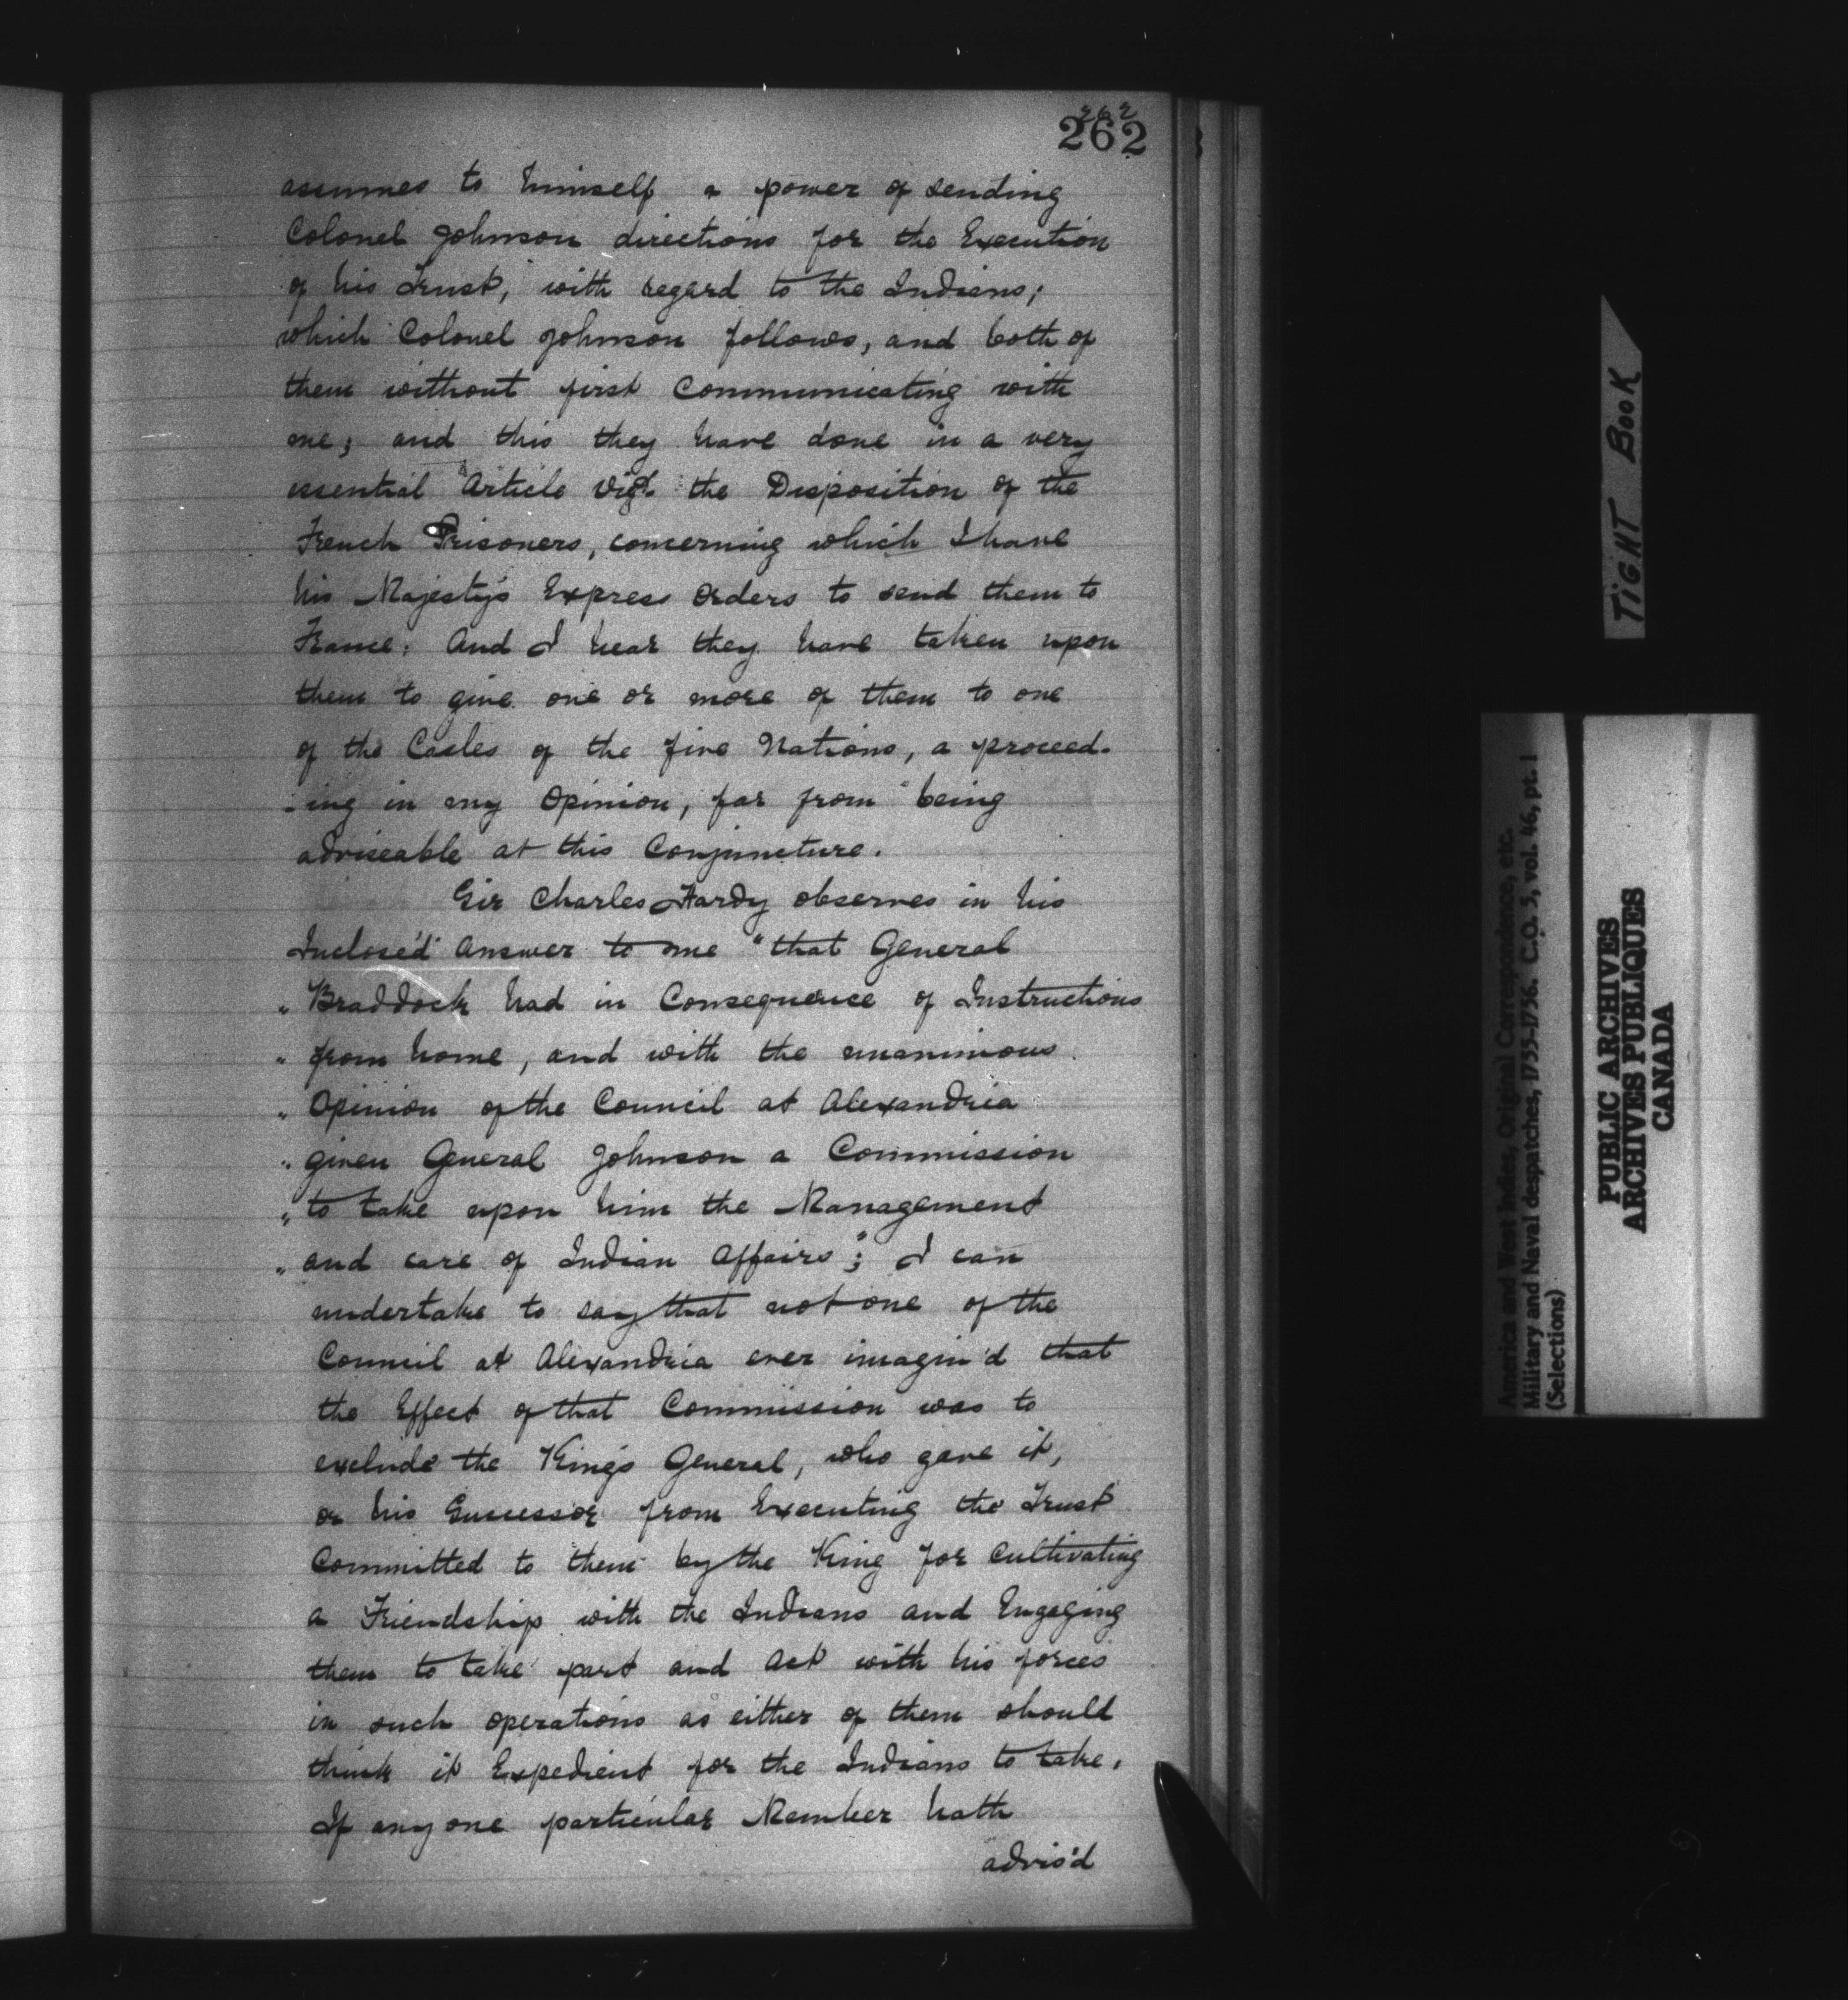 262
262
assumes to himself a power of sending
Colonel Johnson directions for the Execution
of his Trust, with regard to the Indians;
which Colonel Johnson follows, and both of
them without first Communicating with
me; and this they have done in a very
essential Article vizt. the Disposition of the
French Prisoners, concerning which I have
his Majesty's Express Orders to send them to
France: And I hear they have taken upon
them to give one or more of them to one
of the Casles of the five Nations, a proceed-
-ing in my Opinion, far from being
adviseable at this Conjuncture.
Sir Charles Hardy observes in his
Inclose'd Answer to me "that General
" Braddock had in Consequence of Instructions
" from home, and with the unanimous
" Opinion of the Council at Alexandria
" given General Johnson a Commission
" to take upon him the Management
" and care of Indian Affairs"; I can
undertake to say that not one of the
Council at Alexandria ever imagin'd that
the Effect of that Commission was to
exclude the King's General, who gave it,
or his Successor from Executing the Trust
Committed to them by the King for cultivating
a Friendship with the Indians and Engaging
them to take part and Act with his forces
in such operations as either of them should
think it Expedient for the Indians to take,
If any one particular Member hath
advis'd
TIGHT BOOK
America and West Indies, Original Correspondence, etc.
Military and Naval despatches, 1755-1756. C.O. 5, vol. 46, pt. 1
(Selections)
PUBLIC ARCHIVES
ARCHIVES PUBLIQUES
CANADA